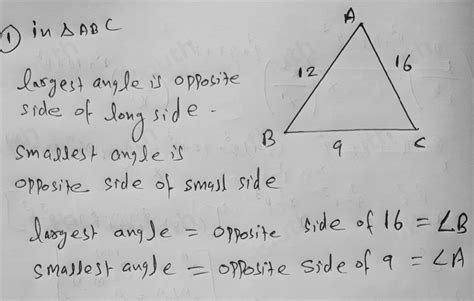 ① in △ ABC
largest angle is opposite
side of long side -
smallest angle is
opposite side of small side
A
12
16
B
9
C
largest angle = opposite side of 16 = ∠B
smallest angle = opposite side of 9 = ∠A